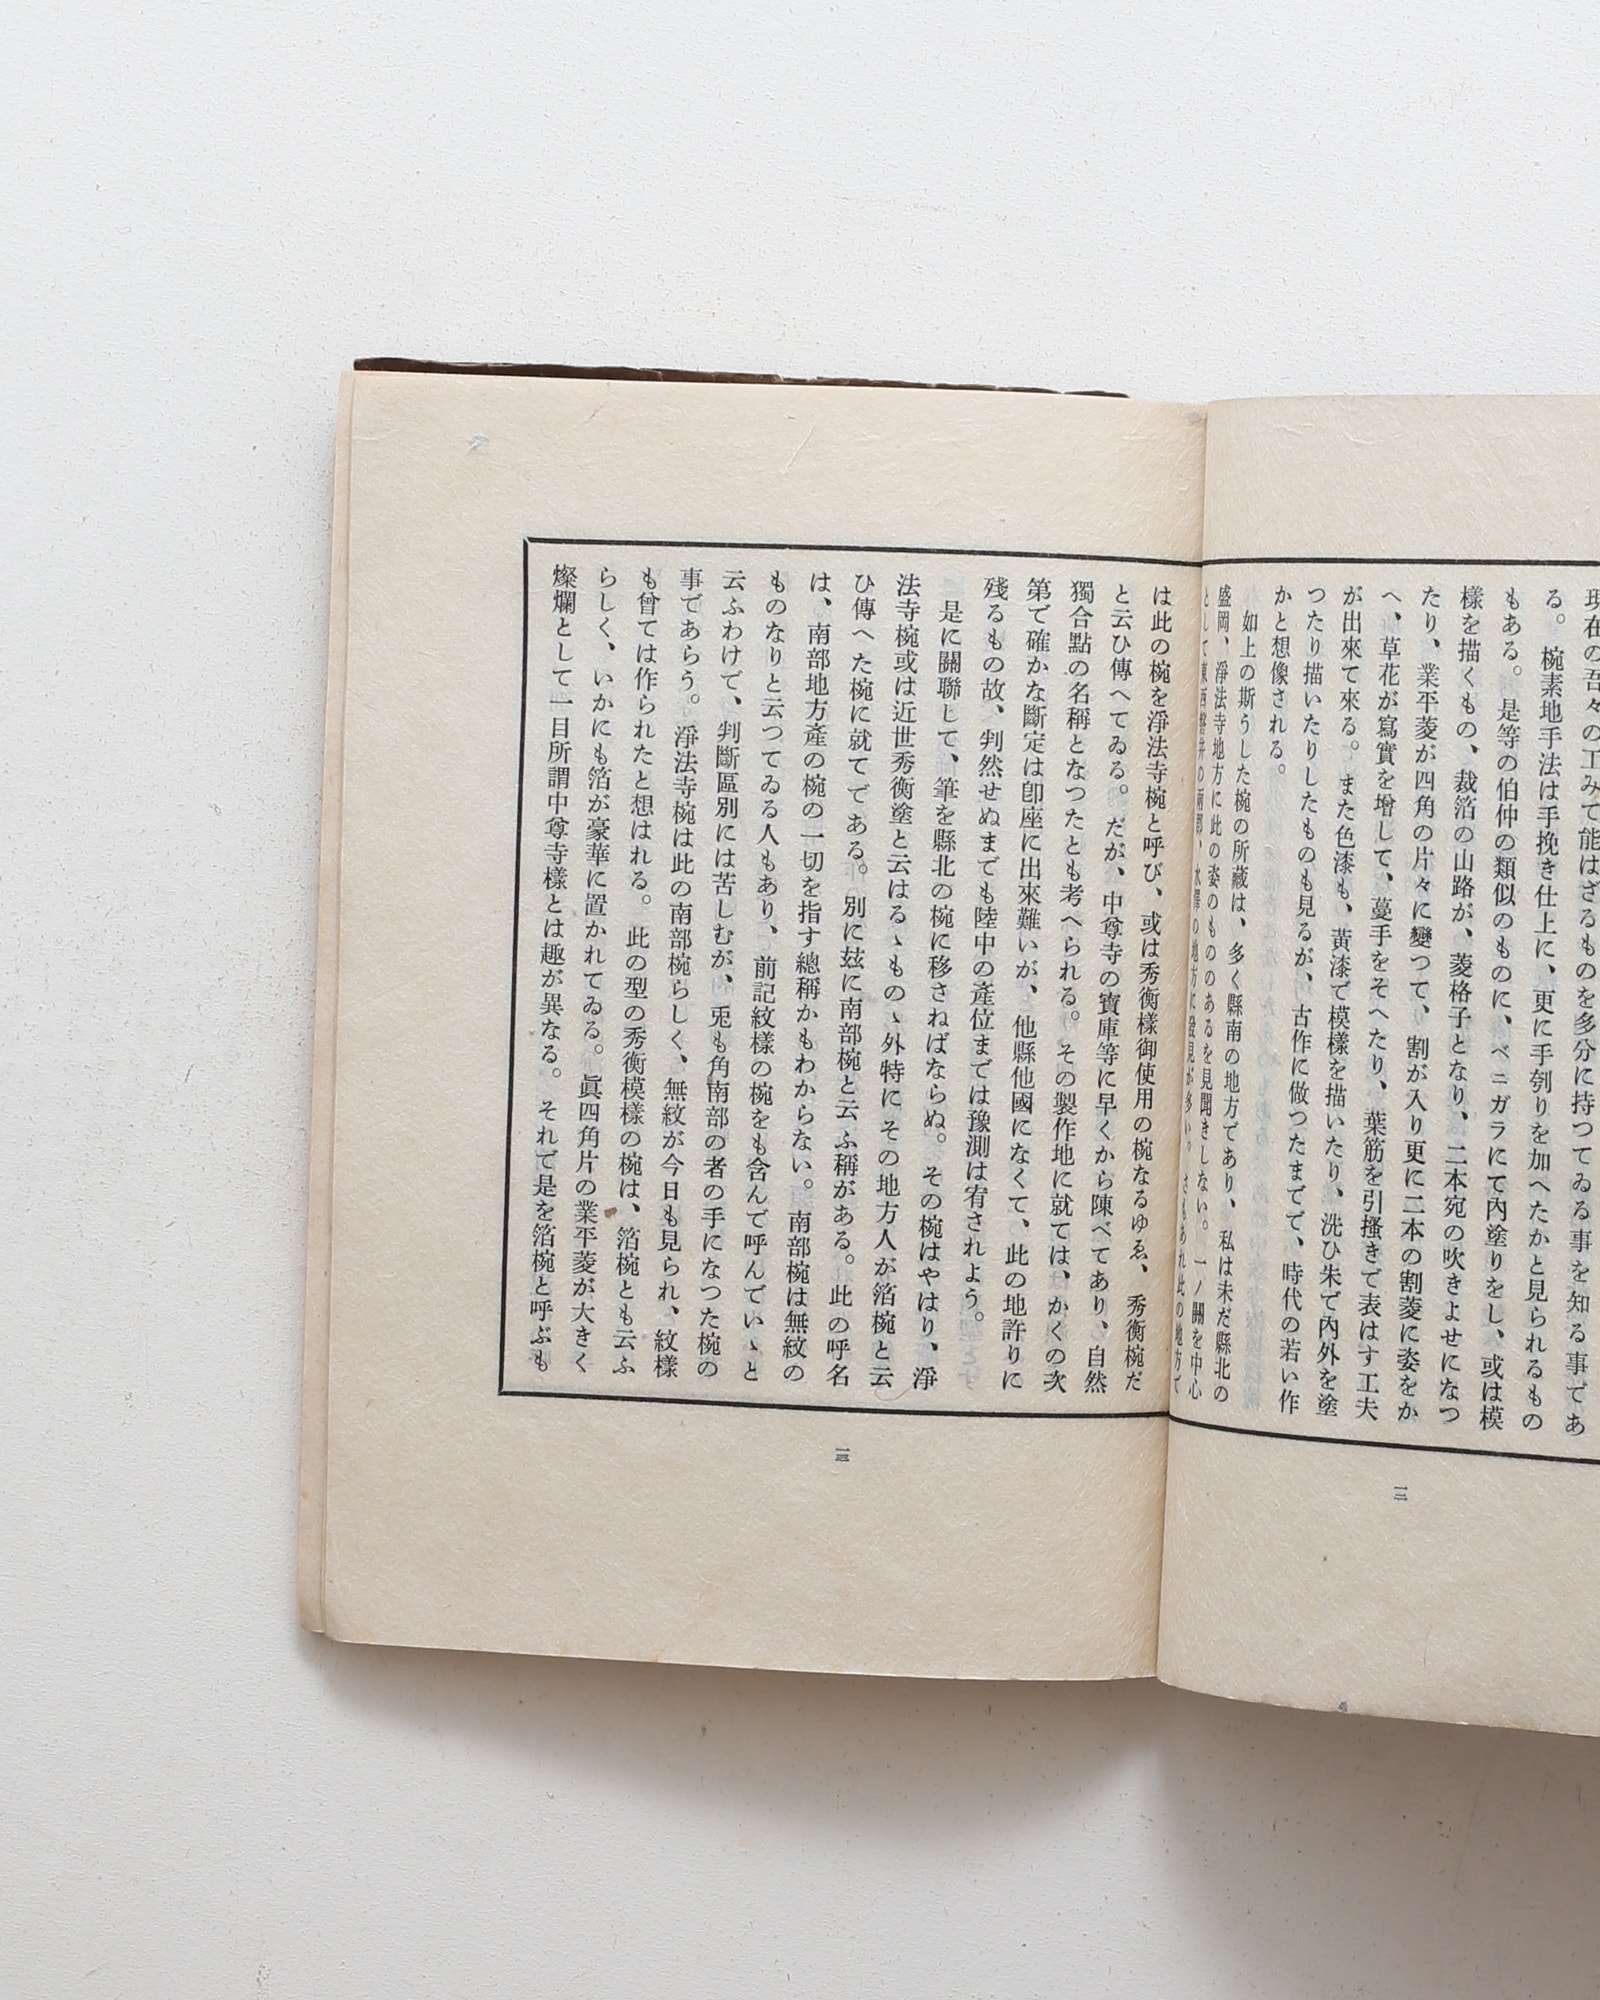 現在の吾々の工みて能はざるものを多分に持つてゐる事を知る事であ
る。椀素地手法は手挽き仕上に、更に手刳りを加へたかと見られるもの
もある。是等の伯仲の類似のものに、ベニガラにて內塗りをし、或は模
樣を描くもの、裁箔の山路が、菱格子となり、二本宛の吹きよせになつ
たり、業平菱が四角の片々に變つて、割が入り更に二本の割菱に姿をか
へ、草花が寫實を增して、蔓手をそへたり、葉筋を引搔きで表はす工夫
が出來て來る。また色漆も、黃漆で模樣を描いたり、洗ひ朱で內外を塗
つたり描いたりしたものも見るが、古作に倣つたまでで、時代の若い作
かと想像される。
如上の斯うした椀の所藏は、多く縣南の地方であり、私は未だ縣北の
盛岡、淨法寺地方に此の姿のもののあるを見聞きしない。一ノ關を中心
として東西磐井の兩郡、水澤の地方に發見が多い。さもあれ此の地方で
は此の椀を淨法寺椀と呼び、或は秀衡樣御使用の椀なるゆゑ、秀衡椀だ
と云ひ傳へてゐる。だが、中尊寺の寶庫等に早くから陳べてあり、自然
獨合點の名稱となつたとも考へられる。その製作地に就ては、かくの次
第で確かな斷定は卽座に出來難いが、他縣他國になくて、此の地許りに
殘るもの故、判然せぬまでも陸中の產位までは豫測は宥されよう。
是に關聯して、筆を縣北の椀に移さねばならぬ。その椀はやはり、淨
法寺椀或は近世秀衡塗と云はるゝものゝ外特にその地方人が箔椀と云
ひ傳へた椀に就てである。別に玆に南部椀と云ふ稱がある。此の呼名
は、南部地方產の椀の一切を指す總稱かもわからない。南部椀は無紋の
ものなりと云つてゐる人もあり、前記紋樣の椀をも含んで呼んでいゝと
云ふわけで、判斷區別には苦しむが、兎も角南部の者の手になつた椀の
事であらう。淨法寺椀は此の南部椀らしく、無紋が今日も見られ、紋樣
も曾ては作られたと想はれる。此の型の秀衡模樣の椀は、箔椀とも云ふ
らしく、いかにも箔が豪華に置かれてゐる。眞四角片の業平菱が大きく
燦爛として一目所謂中尊寺樣とは趣が異なる。それで是を箔椀と呼ぶも
一二
一三